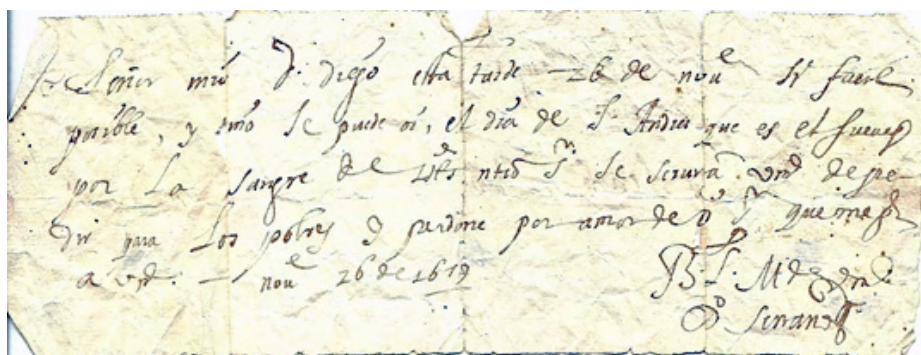 Señor mio D. diego esta tarde 26 de nou^e si fuere
posible, y sino se puede oi, el dia de S. Andres que es el jueues
por La sangre de ntro S^r. se seruira vmd de pe-
dir para Los pobres y perdone por amor de D^s que me g^de
a vmd. – nou^e 26 de 1679
B. L. M de vmd
Serrano